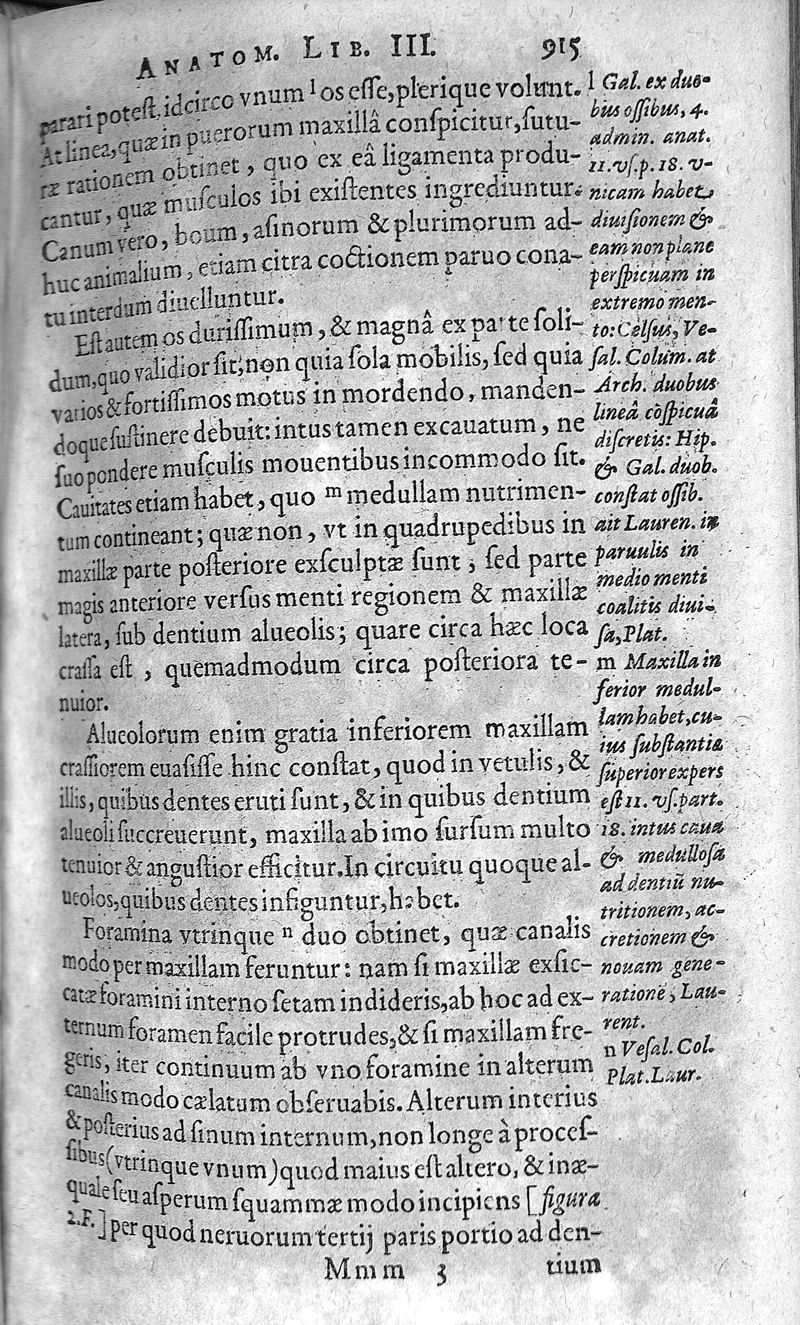 ANATOM. LIB. III. 915
parari potest, idcirco vnum ˡ os esse, plerique volunt.
At linea, quæ in puerorum maxillâ conspicitur, sutu-
ræ rationem obtinet, quo ex eâ ligamenta produ-
cantur, quæ musculos ibi existentes ingrediuntur.
Canum vero, boum, asinorum & plurimorum ad-
huc animalium, etiam citra coctionem paruo cona-
tu interdum diuelluntur.
Est autem os durissimum, & magnâ ex parte soli-
dum, quo validior sit; non quia sola mobilis, sed quia
varios & fortissimos motus in mordendo, manden-
doque sustinere debuit: intus tamen excauatum, ne
suo pondere musculis mouentibus incommodo sit.
Cauitates etiam habet, quo ᵐ medullam nutrimen-
tum contineant; quæ non, vt in quadrupedibus in
maxillæ parte posteriore exsculptæ sunt, sed parte
magis anteriore versus menti regionem & maxillæ
latera, sub dentium alueolis; quare circa hæc loca
crassa est, quemadmodum circa posteriora te-
nuior.
Alueolorum enim gratia inferiorem maxillam
crassiorem euasisse hinc constat, quod in vetulis, &
illis, quibus dentes eruti sunt, & in quibus dentium
alueoli succreuerunt, maxilla ab imo sursum multo
tenuior & angustior efficitur. In circuitu quoque al-
ueolos, quibus dentes infiguntur, habet.
Foramina vtrinque ⁿ duo obtinet, quæ canalis
modo per maxillam feruntur: nam si maxillæ exsic-
catæ foramini interno setam indideris, ab hoc ad ex-
ternum foramen facile protrudes, & si maxillam fre-
geris, iter continuum ab vno foramine in alterum
canalis modo cælatum obseruabis. Alterum interius
& posterius ad sinum internum, non longe à proces-
sibus (vtrinque vnum) quod maius est altero, & inæ-
quale seu asperum squammæ modo incipiens [figura
2. F.] per quod neruorum tertij paris portio ad den-
Mmm 3 tium
l Gal. ex duo-
bus ossibus, 4.
admin. anat.
11. vs. p. 18. v-
nicam habet
diuisionem &
eam non plane
perspicuam in
extremo men-
to: Celsus, Ve-
sal. Colum. at
Arch. duobus
lineâ cōspicuâ
discretis: Hip.
& Gal. duob.
constat ossib.
ait Lauren. in
paruulis in
medio menti
coalitis diui-
sa, Plat.
m Maxilla in
ferior medul-
lam habet, cu-
ius substantia
superior expers
est 11. vs. part.
18. intus caua
& medullosa
ad dentiū nu-
tritionem, ac-
cretionem &
nouam gene-
rationē, Lau-
rent.
n Vesal. Col.
Plat. Laur.